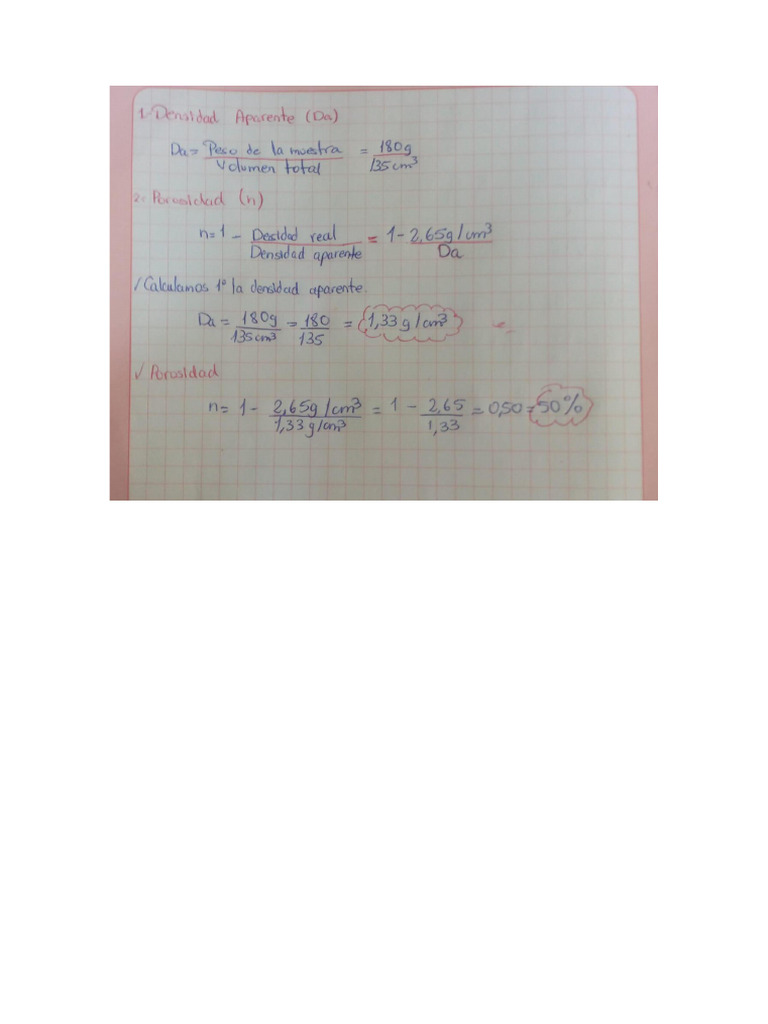 1. Densidad Aparente (Da)
Da = Peso de la muestra / Volumen total = 180g / 135cm³
2. Porosidad (n)
n = 1 - Desidad real / Densidad aparente = 1 - 2,65g/cm³ / Da
✓ Calculamos 1º la densidad aparente.
Da = 180g / 135cm³ = 180 / 135 = 1,33 g/cm³
✓ Porosidad
n = 1 - 2,65g/cm³ / 1,33 g/cm³ = 1 - 2,65 / 1,33 = 0,50 = 50%